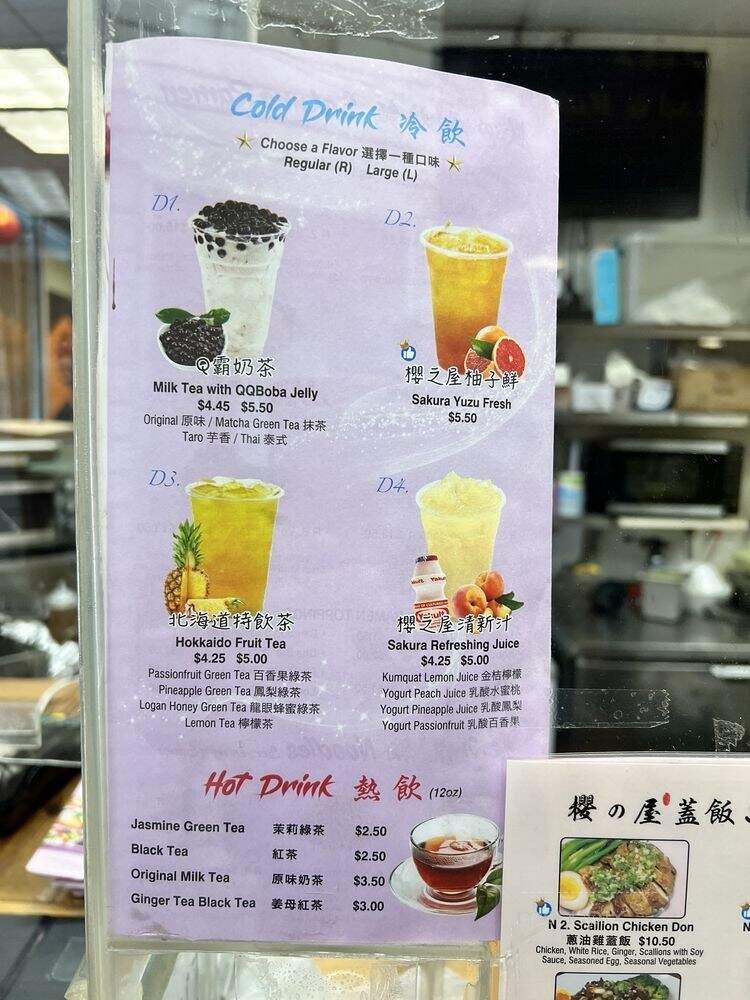 Cold Drink 冷飲
Choose a Flavor 選擇一種口味
Regular (R) Large (L)
D1.
Q霸奶茶
Milk Tea with QQBoba Jelly
$4.45 $5.50
Original 原味 / Matcha Green Tea 抹茶
Taro 芋香 / Thai 泰式
D2.
櫻之屋柚子鮮
Sakura Yuzu Fresh
$5.50
D3.
北海道特飲茶
Hokkaido Fruit Tea
$4.25 $5.00
Passionfruit Green Tea 百香果綠茶
Pineapple Green Tea 鳳梨綠茶
Logan Honey Green Tea 龍眼蜂蜜綠茶
Lemon Tea 檸檬茶
D4.
Yakult
櫻之屋清新汁
Sakura Refreshing Juice
$4.25 $5.00
Kumquat Lemon Juice 金桔檸檬
Yogurt Peach Juice 乳酸水蜜桃
Yogurt Pineapple Juice 乳酸鳳梨
Yogurt Passionfruit 乳酸百香果
Hot Drink 熱飲 (12oz)
Jasmine Green Tea 茉莉綠茶 $2.50
Black Tea 紅茶 $2.50
Original Milk Tea 原味奶茶 $3.50
Ginger Tea Black Tea 姜母紅茶 $3.00
櫻の屋蓋飯
N 2. Scailion Chicken Don
蔥油雞蓋飯 $10.50
Chicken, White Rice, Ginger, Scallions with Soy
Sauce, Seasoned Egg, Seasonal Vegetables